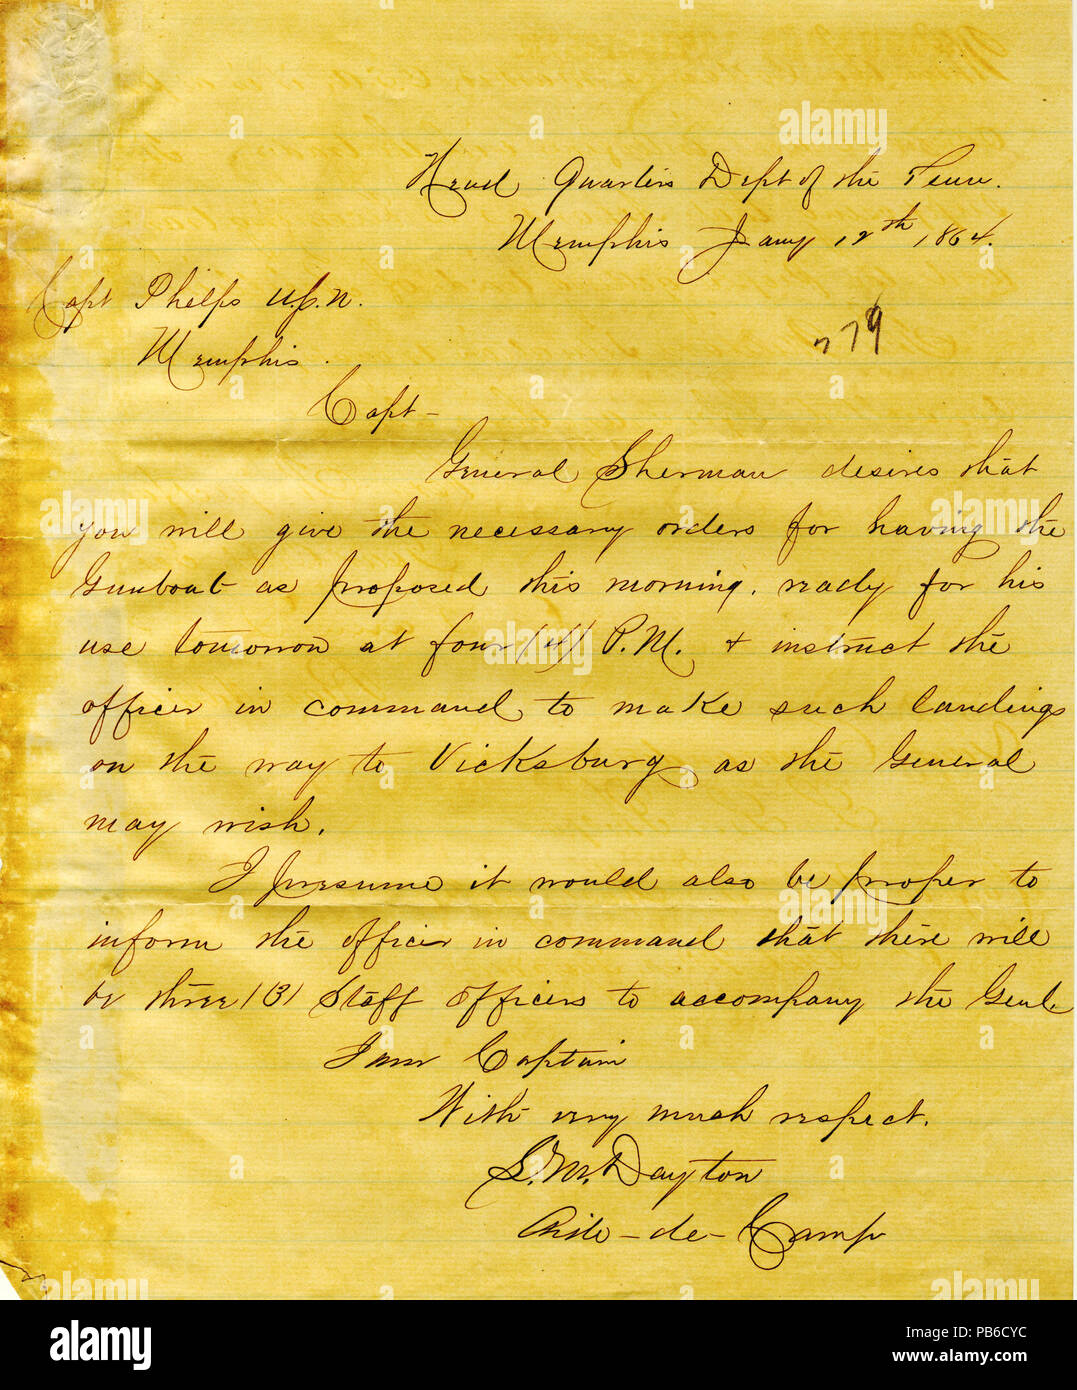 Head Quarters Dept of the Tenn.
Memphis Jany 12th 1864.
Capt Phelps U.S.N.
Memphis.
779
Capt—
General Sherman desires that
you will give the necessary orders for having the
Gunboat as proposed this morning, ready for his
use tomorrow at four (4) P.M. & instruct the
officer in command to make such landings
on the way to Vicksburg as the General
may wish.
I presume it would also be proper to
inform the officer in command that there will
be three (3) Staff officers to accompany the Genl.
I am Captain
With very much respect.
L. M. Dayton
Aide-de-Camp
alamy
Image ID: PB6CYC
www.alamy.com